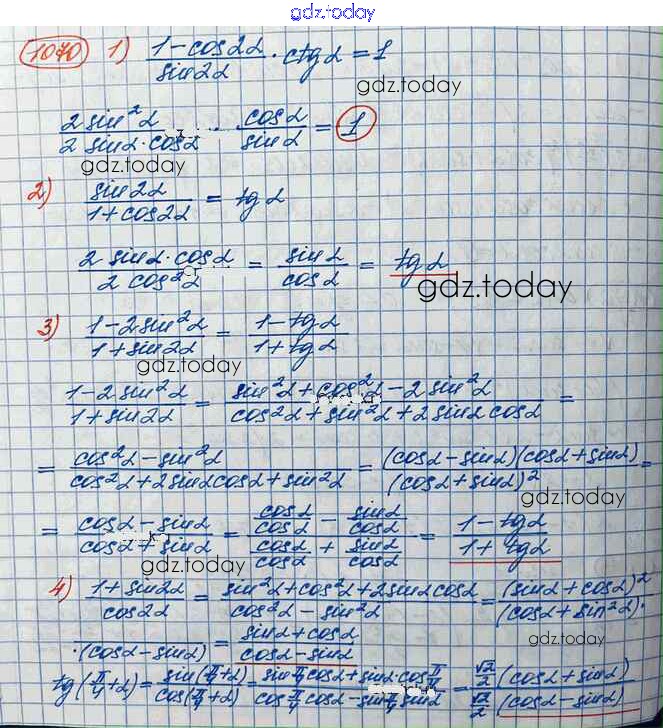 gdz.today
1070 1) (1-cos2α)/(sin2α) · ctgα = 1
gdz.today
(2 sin²α)/(2 sinα·cosα) · (cosα)/(sinα) = 1
gdz.today
2) (sin2α)/(1+cos2α) = tgα
(2 sinα·cosα)/(2 cos²α) = (sinα)/(cosα) = tgα
gdz.today
3) (1-2sin²α)/(1+sin2α) = (1-tgα)/(1+tgα)
gdz.today
(1-2sin²α)/(1+sin2α) = (sin²α+cos²α-2sin²α)/(cos²α+sin²α+2sinαcosα) =
= (cos²α-sin²α)/(cos²α+2sinαcosα+sin²α) = ((cosα-sinα)(cosα+sinα))/((cosα+sinα)²) =
gdz.today
= (cosα-sinα)/(cosα+sinα) = (cosα/cosα - sinα/cosα)/(cosα/cosα + sinα/cosα) = (1-tgα)/(1+tgα)
gdz.today
4) (1+sin2α)/(cos2α) = (sin²α+cos²α+2sinαcosα)/(cos²α-sin²α) = (sinα+cosα)²/(cosα+sin²α)·
/·(cosα-sinα) = (sinα+cosα)/(cosα-sinα)
gdz.today
tg(π/4+α) = (sin(π/4+α))/(cos(π/4+α)) = (sin π/4 cosα+sinα·cos π/4)/(cos π/4 cosα-sin π/4 sinα) = (√2/2 (cosα+sinα))/(√2/2 (cosα-sinα))